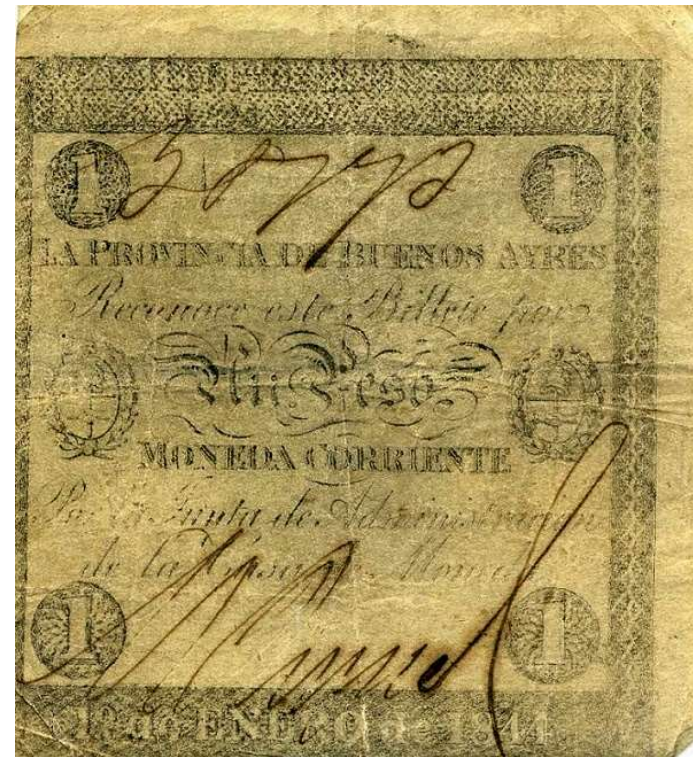 1 1
LA PROVINCIA DE BUENOS AYRES
Reconoce este Billete por
Un Peso
MONEDA CORRIENTE
Por la Junta de Administracion
de la Casa de Moneda
1 1
1º de ENERO de 1844